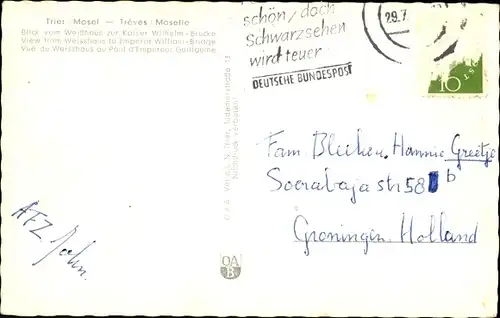 Trier Mosel — Trèves Moselle
Blick vom Weißhaus zur Kaiser Wilhelm-Brücke
View from Weisshaus to Emperor William-Bridge
Vue du Weisshaus au Pont d'Empereur Guillaume
schön, doch
Schwarzsehen
wird teuer
DEUTSCHE BUNDESPOST
29.7
10
Fam Blieken, Hannie, Greetje
Soerabaja str 58 b
Groningen. Holland
AFZ John.
Trier,
Nachdruck verboten!
OA
B